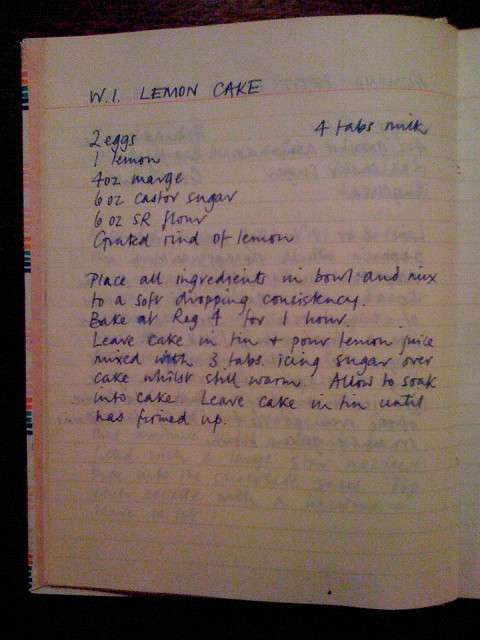 W.I. LEMON CAKE
2 eggs 4 tabs milk
1 lemon
4oz marge
6 oz castor sugar
6 oz SR flour
Grated rind of lemon
Place all ingredients in bowl and mix
to a soft dropping consistency.
Bake at Reg 4 for 1 hour.
Leave cake in tin + pour lemon juice
mixed with 3 tabs. icing sugar over
cake whilst still warm. Allow to soak
into cake. Leave cake in tin until
has firmed up.